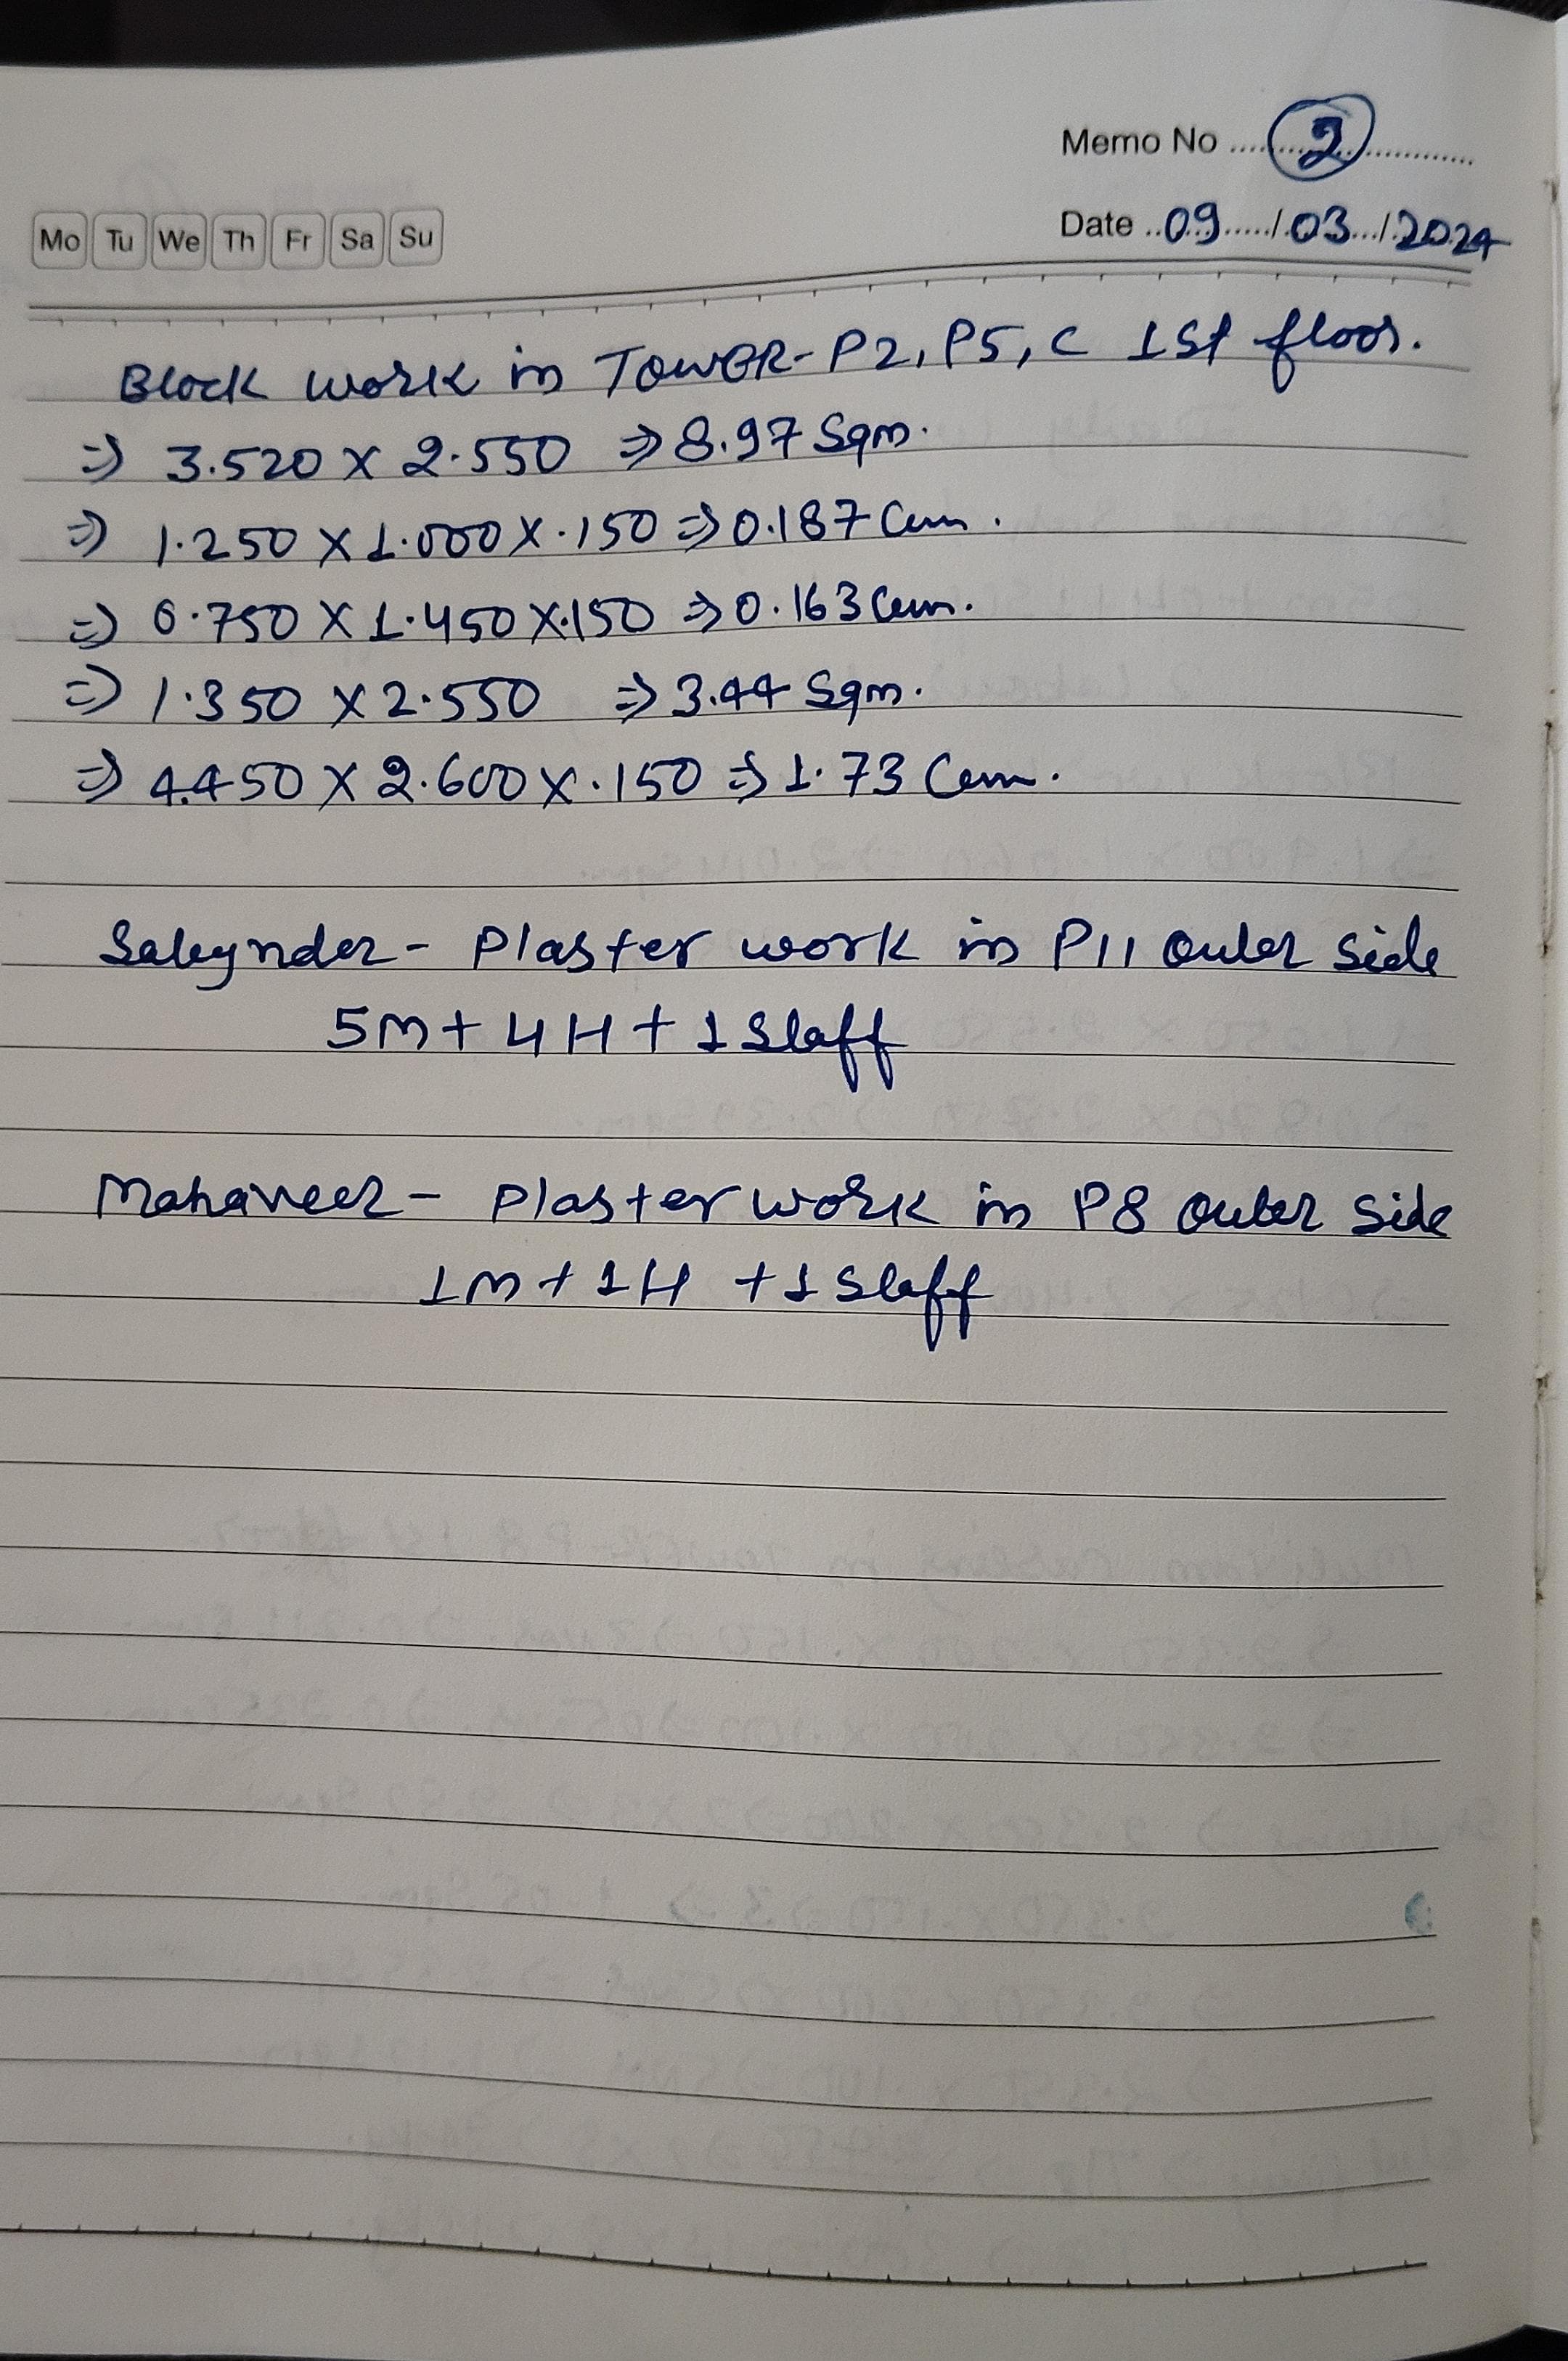 Memo No 2
Date 09/03/2024
Mo Tu We Th Fr Sa Su
Block work in TOWER-P2, P5, C 1st floor.
⇒ 3.520 X 2.550 ⇒ 8.97 Sqm.
⇒ 1.250 X 1.000 X .150 ⇒ 0.187 Cum.
⇒ 0.750 X 1.450 X .150 ⇒ 0.163 Cum.
⇒ 1.350 X 2.550 ⇒ 3.44 Sqm.
⇒ 4.450 X 2.600 X .150 ⇒ 1.73 Cum.
- Plaster work in P11 Outer Side
5M + 4H + 1 Staff
Mahaveer - Plaster work in P8 Outer Side
1M + 1H + 1 Staff